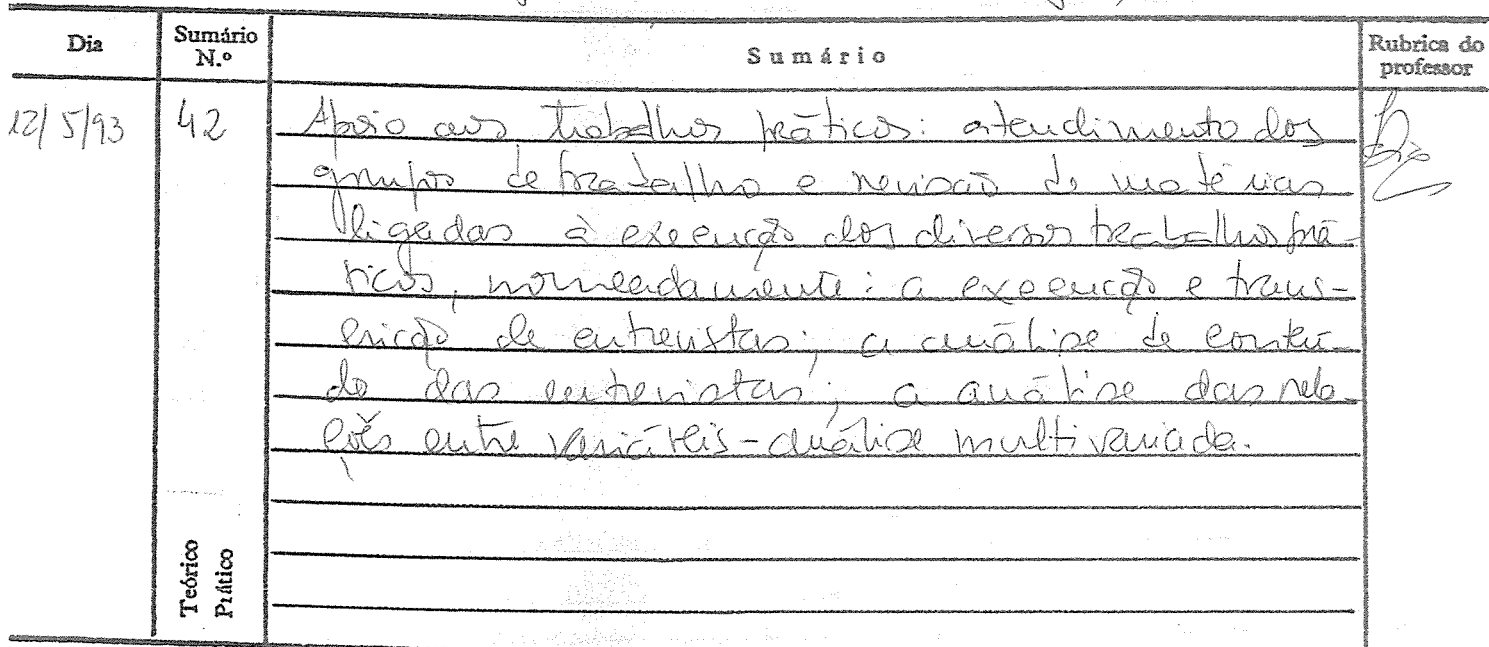 Dia Sumário N.º Sumário Rubrica do professor
12/5/93 42 Apoio aos trabalhos práticos: atendimento dos
grupos de trabalho e revisão de matérias
ligadas à execução dos diversos trabalhos prá-
ticos, nomeadamente: a execução e trans-
crição de entrevistas; a análise de conteú-
do das entrevistas; a análise das rela-
ções entre variáveis - análise multivariada.
Teórico
Prático